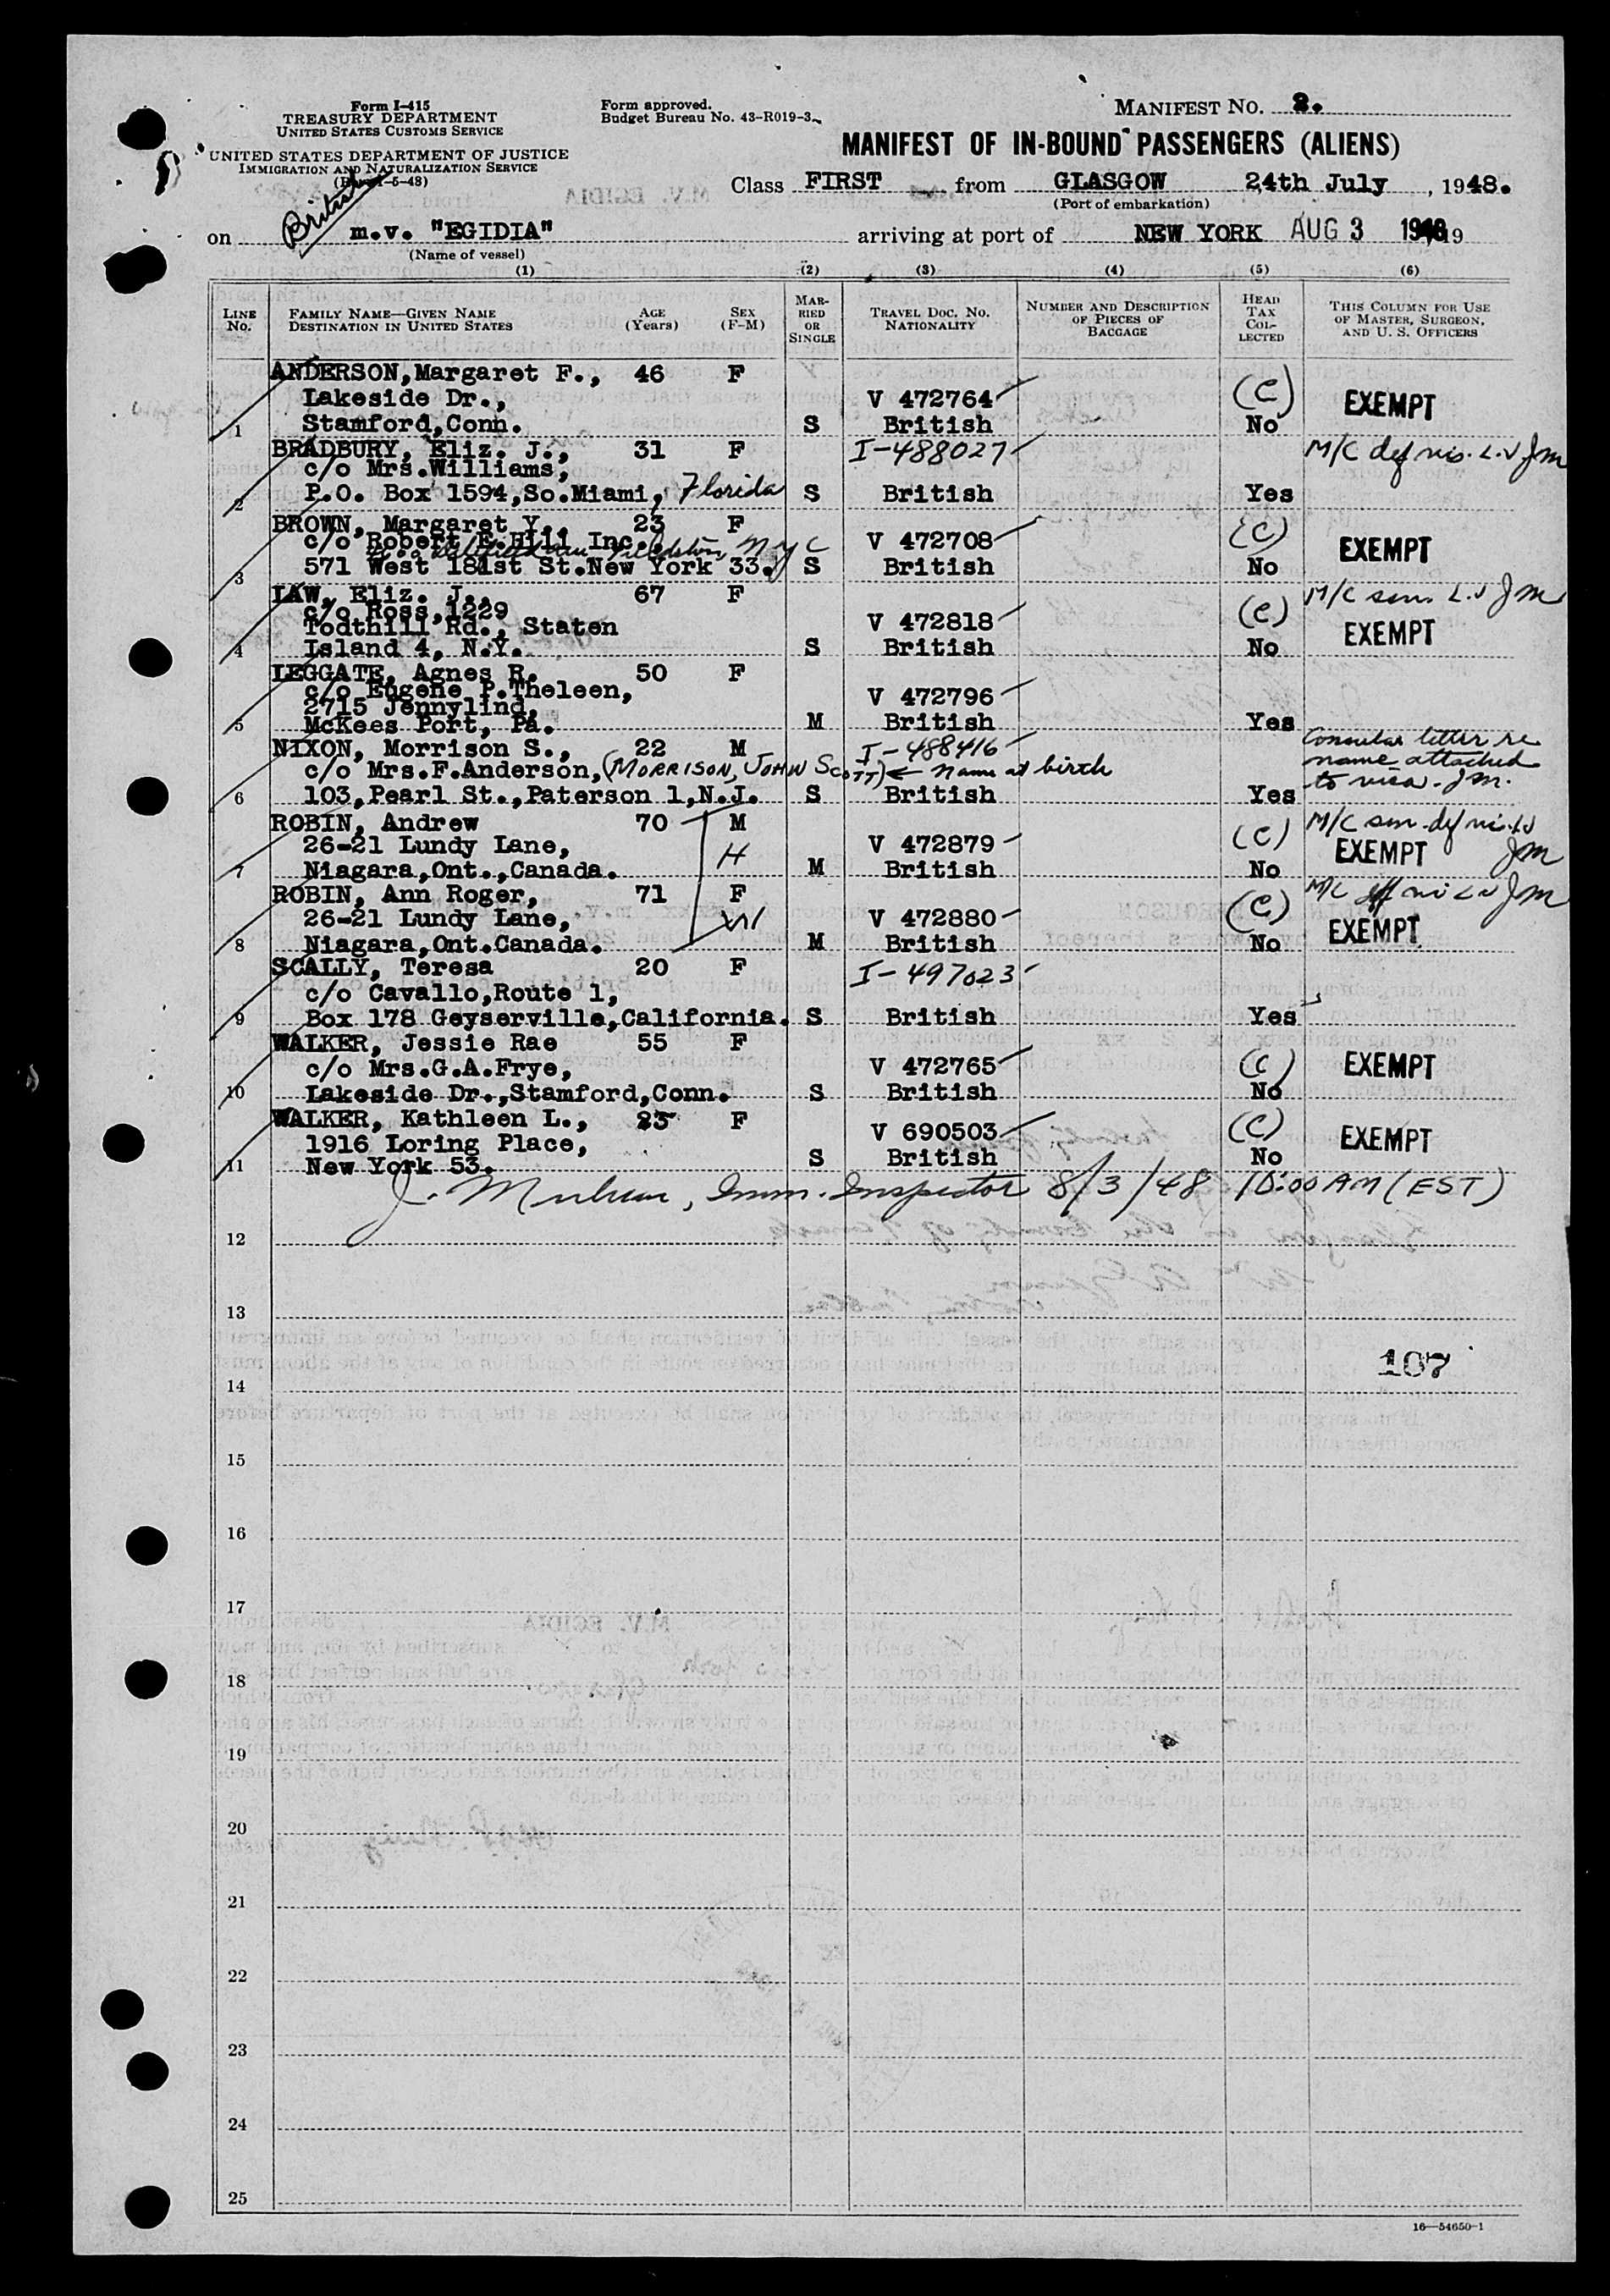 Form I-415
TREASURY DEPARTMENT
UNITED STATES CUSTOMS SERVICE
UNITED STATES DEPARTMENT OF JUSTICE
IMMIGRATION AND NATURALIZATION SERVICE
Form approved.
Budget Bureau No. 43-R019-3.
MANIFEST NO. 2.
MANIFEST OF IN-BOUND PASSENGERS (ALIENS)
Class FIRST from GLASGOW 24th July, 1948.
(Port of embarkation)
British
on m.v. "EGIDIA" arriving at port of NEW YORK AUG 3 1948
(Name of vessel)
(1) (2) (3) (4) (5) (6)
LINE NO. FAMILY NAME—GIVEN NAME DESTINATION IN UNITED STATES AGE (Years) SEX (F-M) MARRIED OR SINGLE TRAVEL DOC. NO. NATIONALITY NUMBER AND DESCRIPTION OF PIECES OF BAGGAGE HEAD TAX COLLECTED THIS COLUMN FOR USE OF MASTER, SURGEON, AND U. S. OFFICERS
ANDERSON, Margaret F., 46 F
Lakeside Dr., V 472764 (C) EXEMPT
1 Stamford, Conn. S British No
BRADBURY, Eliz. J., 31 F I-488027 M/C def vis. L.V JM
c/o Mrs.Williams,
2 P.O. Box 1594,So.Miami, Florida S British Yes
BROWN, Margaret Y., 23 F
c/o Robert E.Hill Inc. V 472708 (C) EXEMPT
Fieldston NYC
3 571 West 181st St.New York 33. S British No
LAW, Eliz. J., 67 F M/C sen L.V JM
c/o Ross,1229
Todthill Rd., Staten V 472818 (C) EXEMPT
4 Island 4, N.Y. S British No
LEGGATE, Agnes R. 50 F
c/o Eugene P.Theleen, V 472796
2715 Jennylind,
5 McKees Port, Pa. M British Yes
NIXON, Morrison S., 22 M I-488416 Consular letter re
c/o Mrs.F.Anderson, (MORRISON, JOHN SCOTT) ← name at birth name attached
6 103,Pearl St.,Paterson 1,N.J. S British Yes to visa. JM.
ROBIN, Andrew 70 M M/C sen. def vis. LV
26-21 Lundy Lane, H V 472879 (C) EXEMPT JM
7 Niagara,Ont.,Canada. M British No
ROBIN, Ann Roger, 71 F M/C LV JM
26-21 Lundy Lane, W V 472880 (C) EXEMPT
8 Niagara,Ont.Canada. M British No
SCALLY, Teresa 20 F I-497023
c/o Cavallo,Route 1,
9 Box 178 Geyserville,California. S British Yes
WALKER, Jessie Rae 55 F
c/o Mrs.G.A.Frye, V 472765 (C) EXEMPT
10 Lakeside Dr.,Stamford,Conn. S British No
WALKER, Kathleen L., 25 F
1916 Loring Place, V 690503 (C) EXEMPT
11 New York 53. S British No
Imm. Inspector 8/3/48 10:00 AM (EST)
12
13
107
14
15
16
17
18
19
20
21
22
23
24
25
16—54650-1